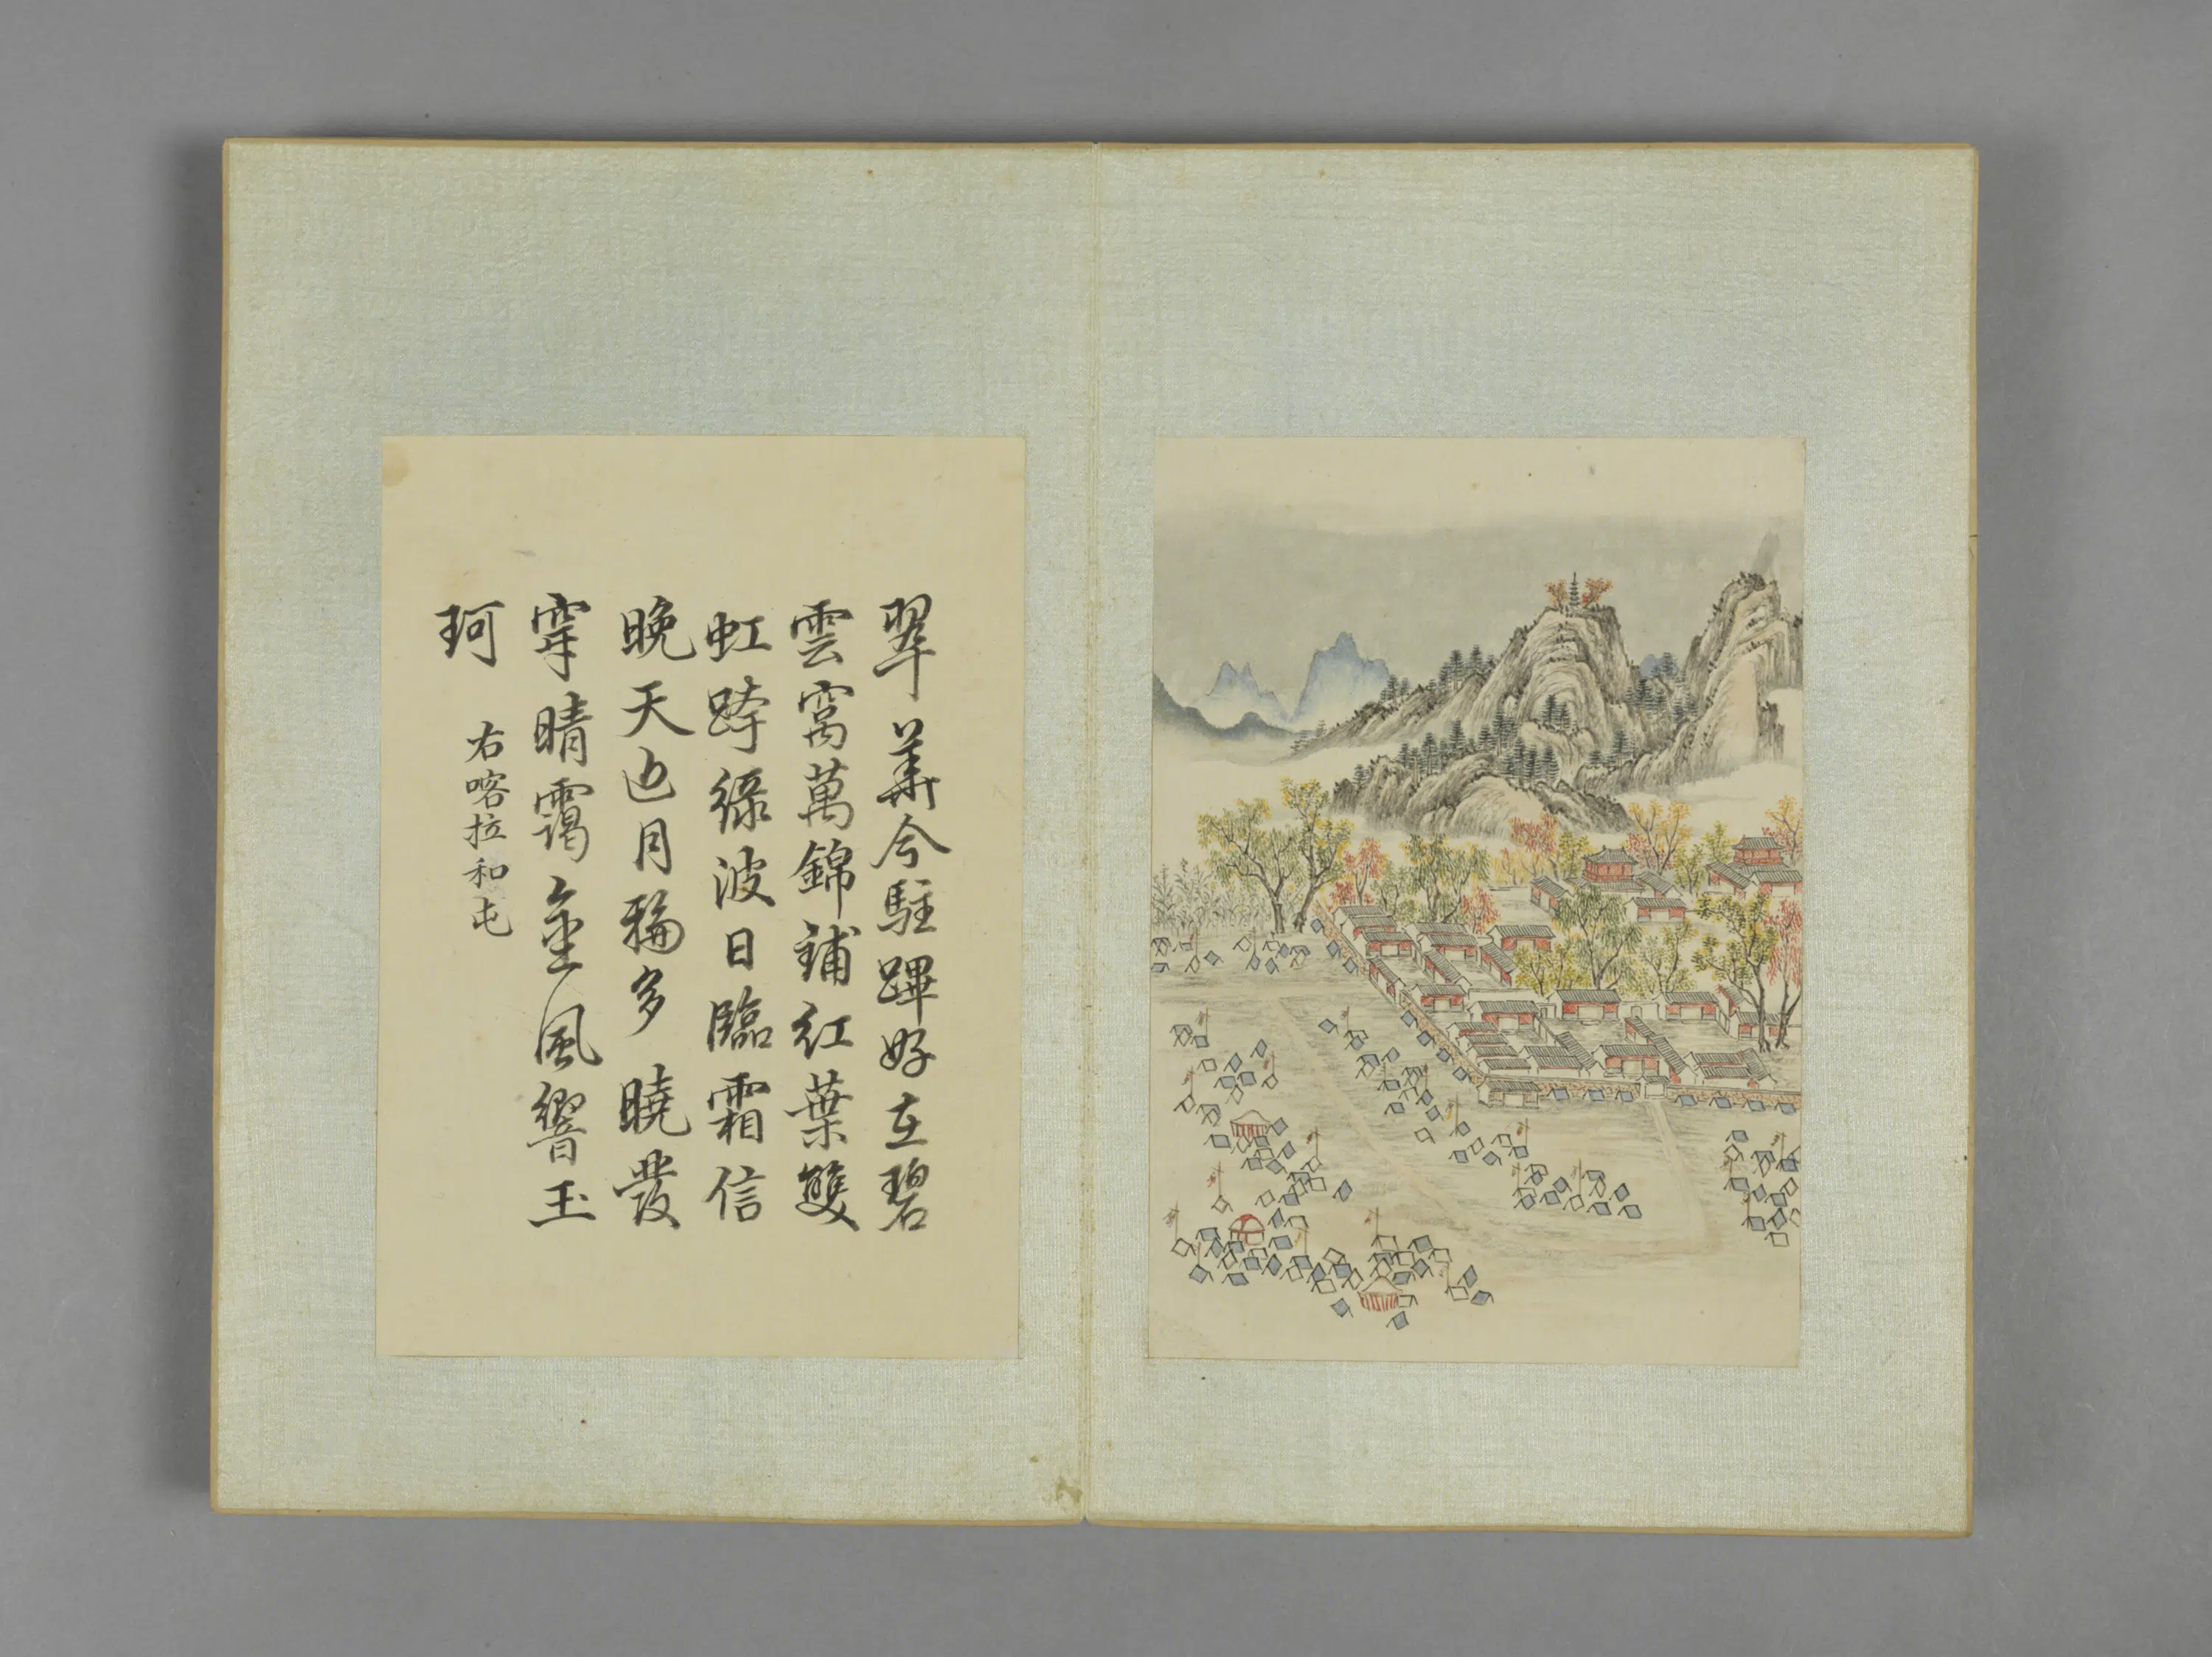 翠華今駐蹕好在碧
雲窩萬錦鋪紅葉雙
虹跨綠波日臨霜信
晚天近月輪多曉發
穿晴靄金風響玉
珂
右喀拉和屯